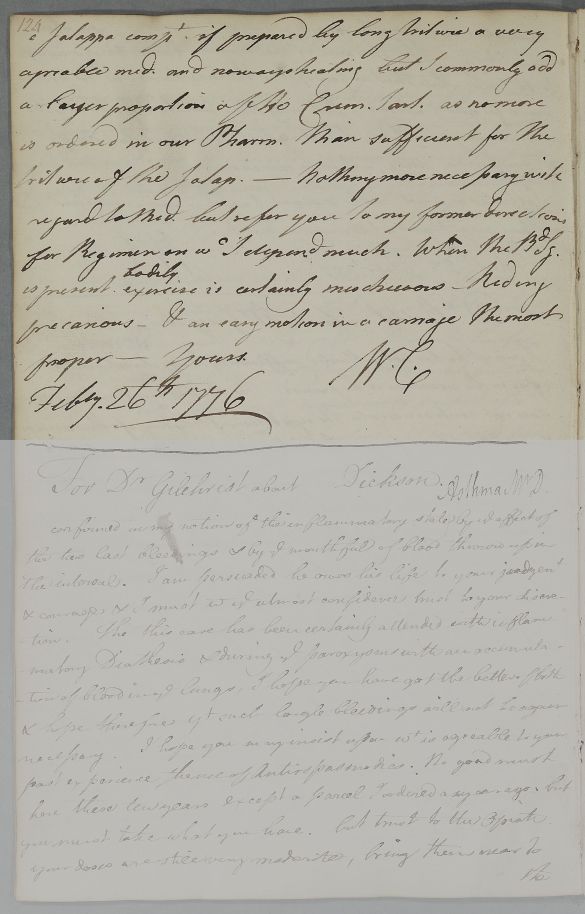 124
e Jalappa compt. if prepared by long triture a very
agreable med. and noways heating but I commonly add
a larger proportion of the Crem. tart. as no more
is ordered in our Pharm. than sufficient for the
triture of the Jalap. — Nothing more necessary with
regard to Med. but refer you to my former directions
for Regimen on wc I depend much. When the Bldg.
is present bodily exercise is certainly mischievous — Riding
precarious — & an easy motion in a carriage the most
proper — Yours.
W. C.
Feby. 26th 1776
For Dr Gilchrist about Dickson. Asthma. Mr D.
confirmed in my notion of the inflammatory state by ye effect of
the two last bleedings & by ye mouthful of blood thrown up in
the interval. I am persuaded he owes his life to your judgent
& courage & I must wt ye utmost confidence trust to your discre-
-tion. Tho this case has been certainly attended with inflam-
-matory Diathesis & during ye paroxysms with an accumula-
-tion of blood in ye lungs, I hope you have got the better of both
& hope therefore yt such large bleedings will not be again
necessary. I hope you may insist upon wt is agreable to your
past experience the use of Antispasmodics. No good must
here these two years except a parcel I ordered a year ago. but
you must take what you have. but trust to the Opiate
your doses are still very moderate, bring them near to
the